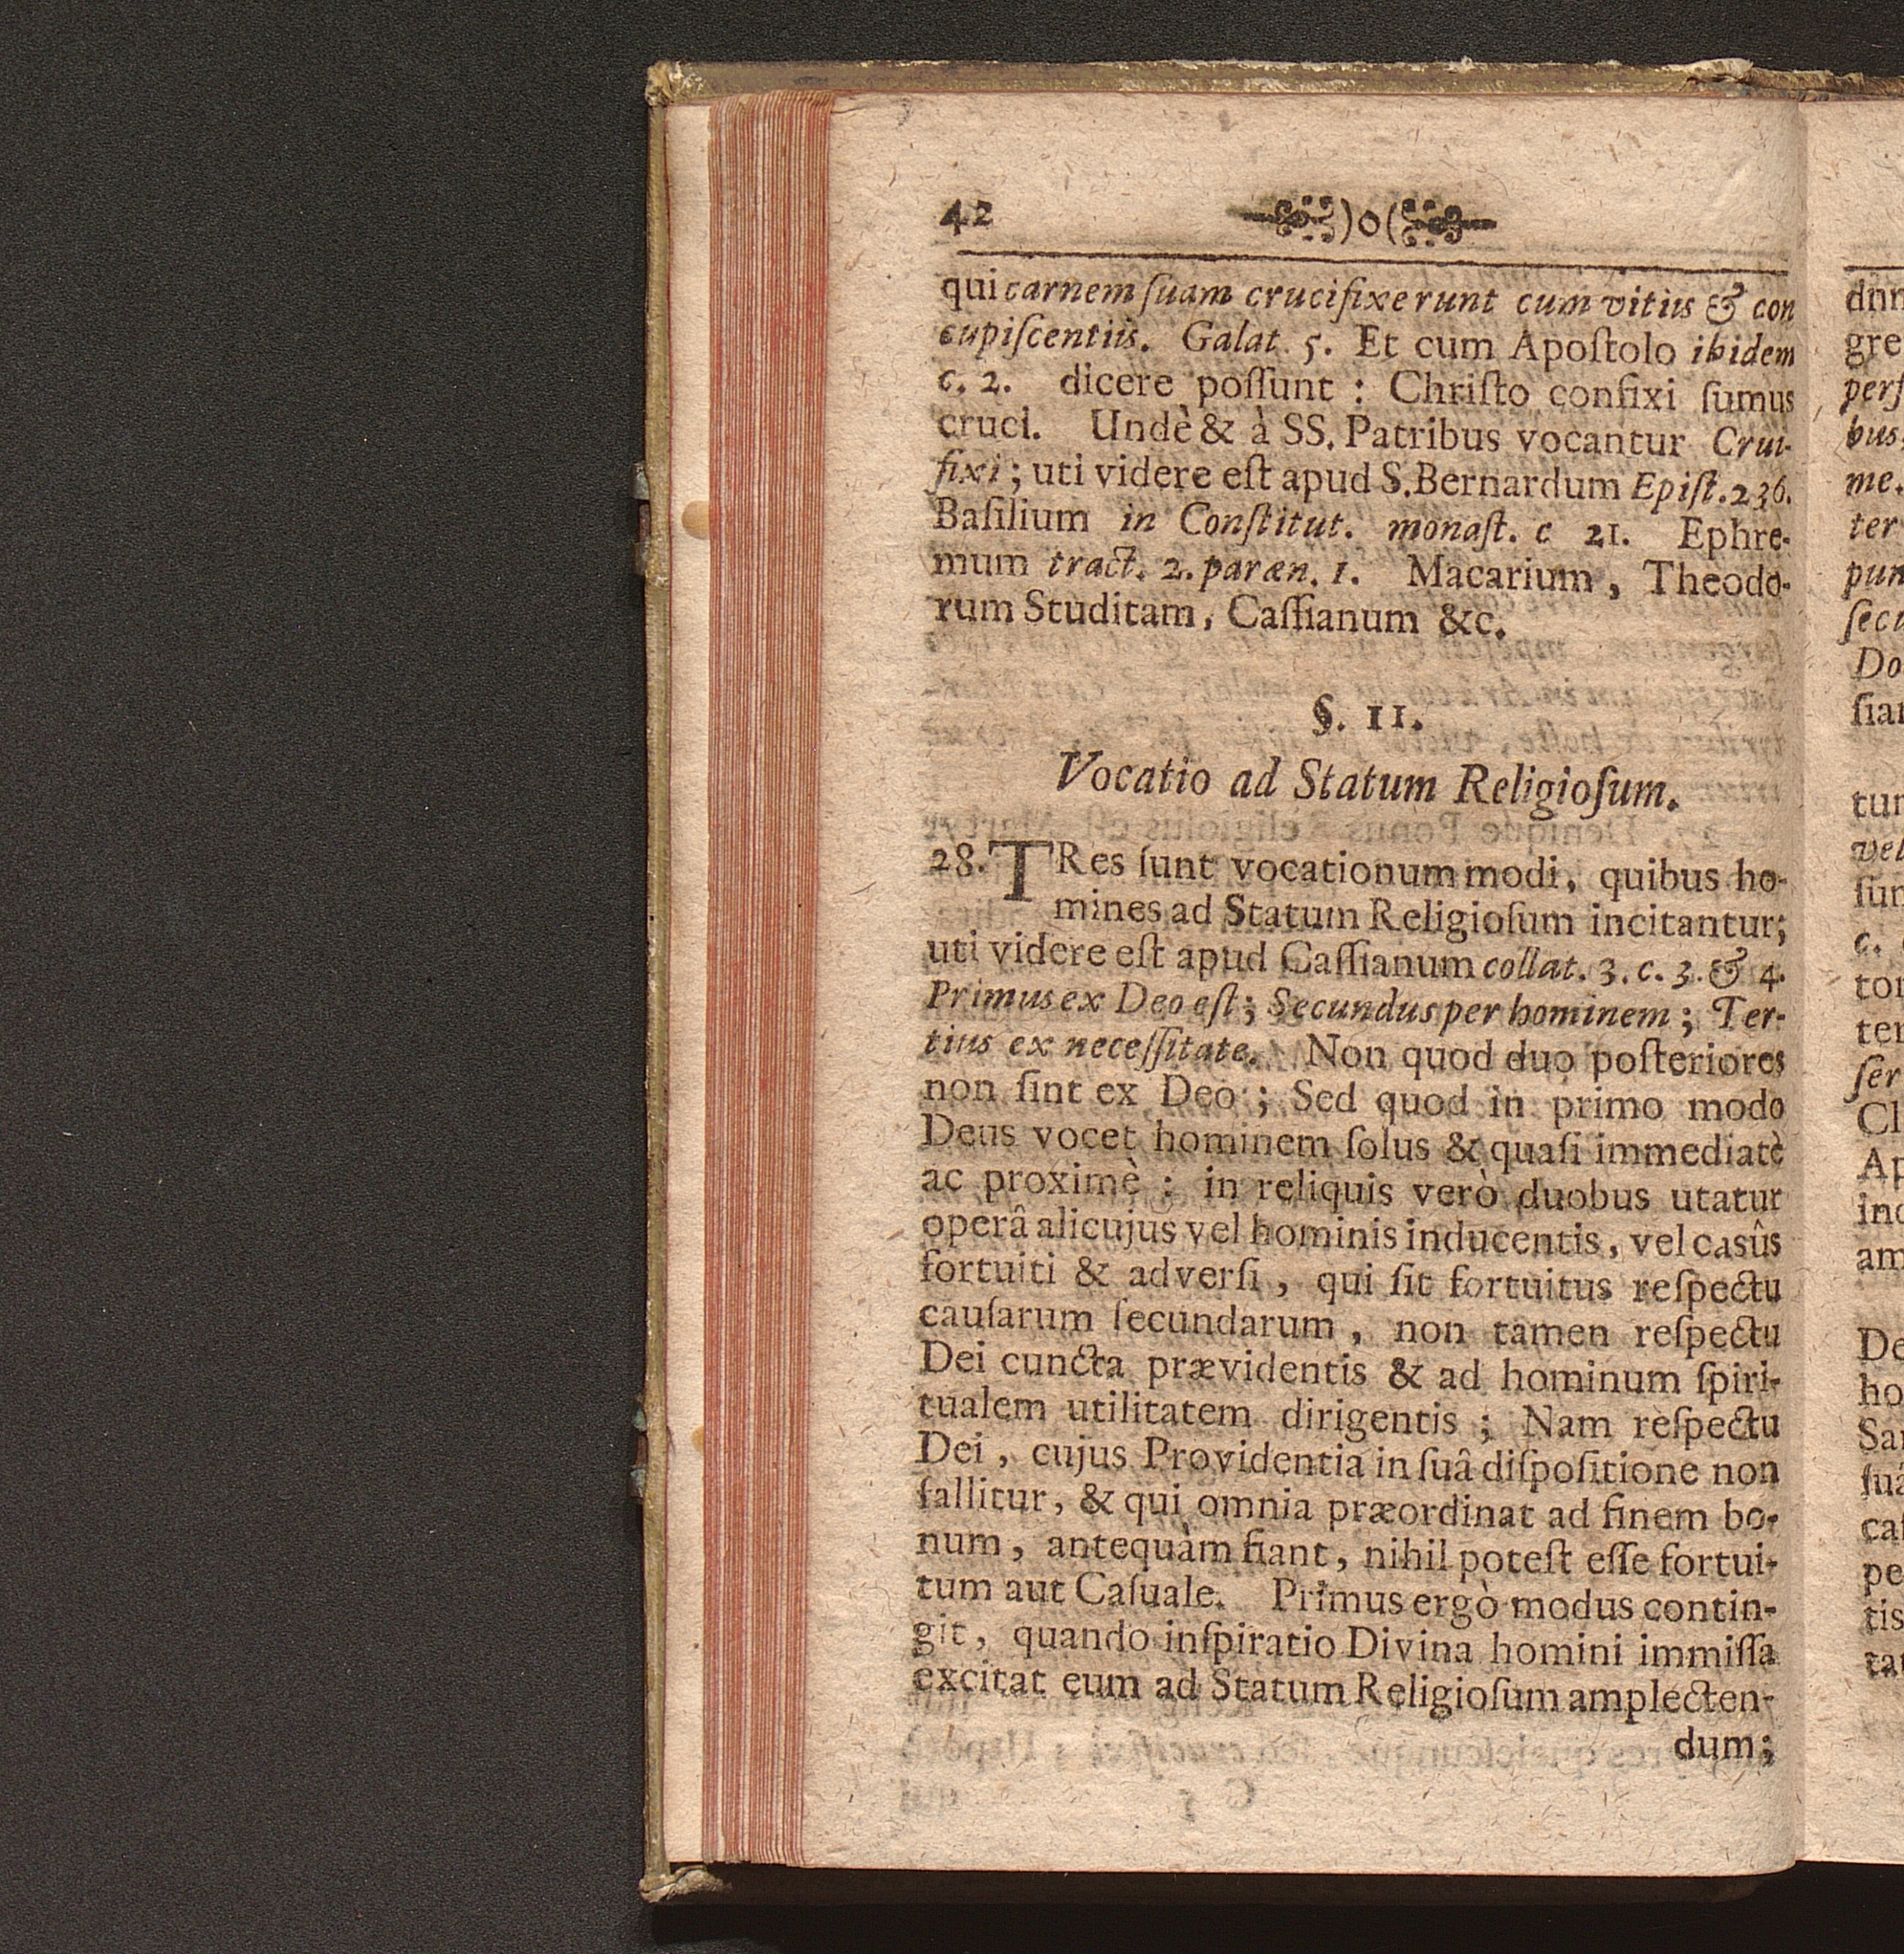 42 )o(
qui carnem ſuam crucifixerunt cum vitiis & con
cupiſcentiis. Galat. 5. Et cum Apoſtolo ibidem
c. 2. dicere poſſunt : Chriſto confixi ſumus
cruci. Undè & à SS. Patribus vocantur Crui-
fixi ; uti videre eſt apud S. Bernardum Epiſt. 236.
Baſilium in Conſtitut. monaſt. c 21. Ephre-
mum tract. 2. paræn. 1. Macarium, Theodo-
rum Studitam, Caſſianum &c.
§. II.
Vocatio ad Statum Religioſum.
28. TRes ſunt vocationum modi, quibus ho-
mines ad Statum Religioſum incitantur;
uti videre eſt apud Caſſianum collat. 3. c. 3. & 4.
Primus ex Deo eſt; Secundus per hominem; Ter-
tius ex neceſſitate. Non quod duo poſteriores
non ſint ex Deo ; Sed quod in primo modo
Deus vocet hominem ſolus & quaſi immediatè
ac proximè : in reliquis verò duobus utatur
operâ alicujus vel hominis inducentis, vel casûs
fortuiti & adverſi, qui ſit fortuitus reſpectu
cauſarum ſecundarum, non tamen reſpectu
Dei cuncta prævidentis & ad hominum ſpiri-
tualem utilitatem dirigentis ; Nam reſpectu
Dei, cujus Providentia in ſuâ diſpoſitione non
fallitur, & qui omnia præordinat ad finem bo-
num, antequàm fiant, nihil poteſt eſſe fortui-
tum aut Caſuale. Primus ergò modus contin-
git, quando inſpiratio Divina homini immiſſa
excitat eum ad Statum Religioſum amplecten-
dum;